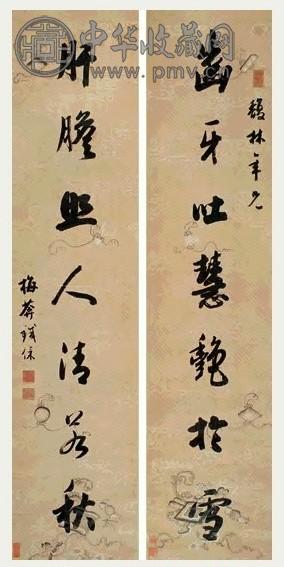 中华收藏网
www.pmv.cn
馥林年兄
齿牙吐慧艳於雪
肝膽照人清若秋
梅葊鐵保